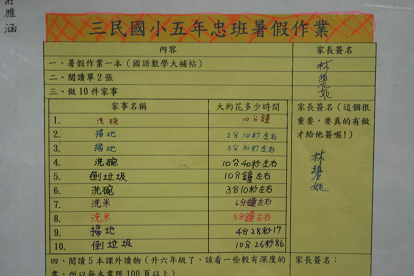 莊雅涵
三民國小五年忠班暑假作業
內容 家長簽名
一、暑假作業一本(國語數學大補帖)
二、閱讀單2張
三、做10件家事
家事名稱 大約花多少時間 家長簽名(這個很重要,要真的有做才給他簽喔!)
1. 洗碗 10分鐘
2. 掃地 2分10秒左右
3. 掃地 3分30秒左右
4. 洗碗 10分40秒左右
5. 倒垃圾 10分鐘左右
6. 洗碗 3分10秒左右
7. 洗米 6分鐘左右
8. 洗米 5分鐘左右
9. 掃地 4分28秒17
10. 倒垃圾 10分26秒86
四、閱讀5本課外讀物(升六年級了,該看一些較有深度的 家長簽名:
書,所以每本要限100頁以上)